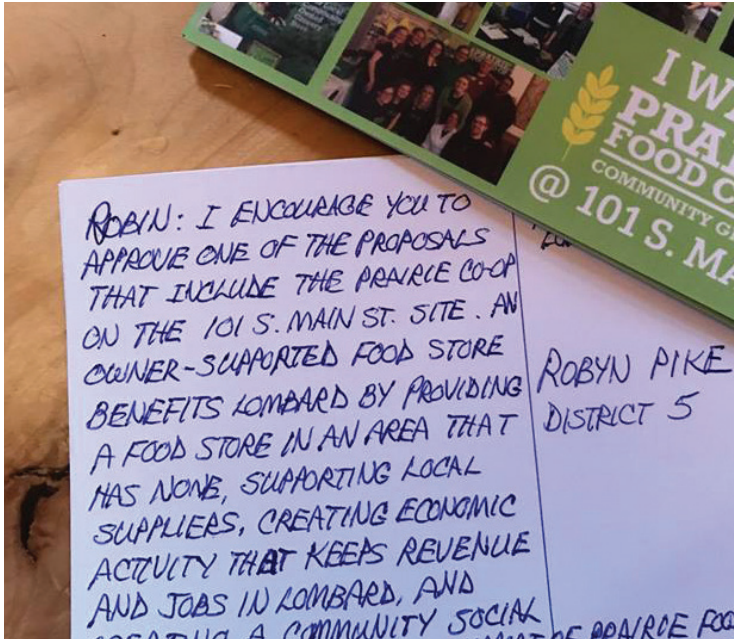 I WA
PRAI
FOOD C
COMMUNITY G
@ 101 S. MA
ROBIN: I ENCOURAGE YOU TO
APPROVE ONE OF THE PROPOSALS
THAT INCLUDE THE PRAIRIE CO-OP
ON THE 101 S. MAIN ST. SITE. AN
OWNER-SUPPORTED FOOD STORE
BENEFITS LOMBARD BY PROVIDING
A FOOD STORE IN AN AREA THAT
HAS NONE, SUPPORTING LOCAL
SUPPLIERS, CREATING ECONOMIC
ACTIVITY THAT KEEPS REVENUE
AND JOBS IN LOMBARD, AND
CREATING A COMMUNITY SOCIAL
ROBYN PIKE
DISTRICT 5
OF PRAIRIE FOO